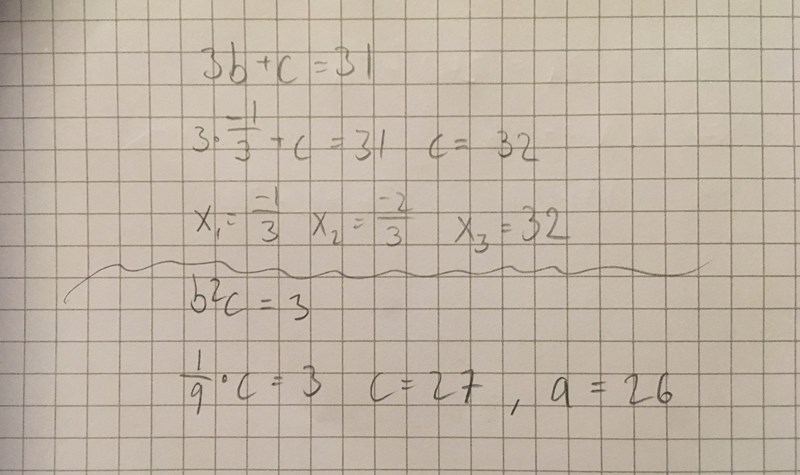 3b + c = 31
3 · -1/3 + c = 31 c = 32
x₁ = -1/3 x₂ = -2/3 x₃ = 32
b²c = 3
1/9 · c = 3 c = 27 , a = 26